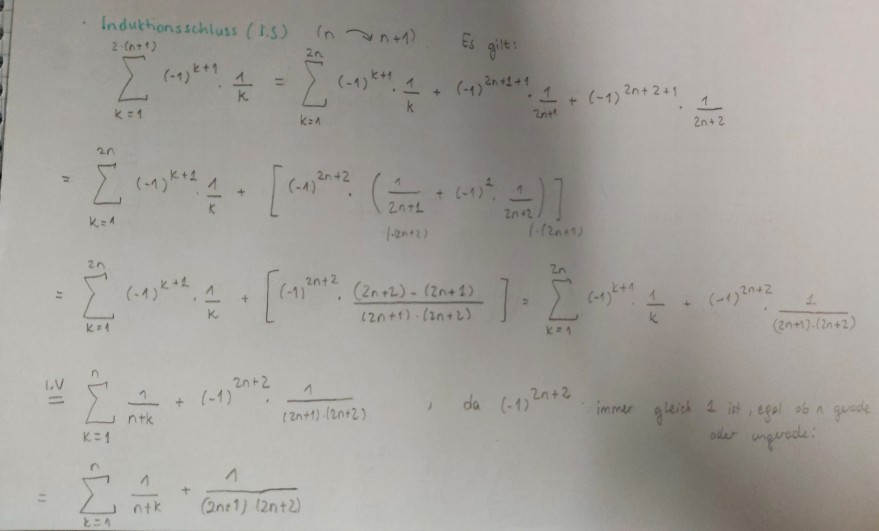 · Induktionsschluss (I.S) (n ↷ n+1) Es gilt:
\sum_{k=1}^{2·(n+1)} (-1)^{k+1} · \frac{1}{k} = \sum_{k=1}^{2n} (-1)^{k+1} · \frac{1}{k} + (-1)^{2n+1+1} · \frac{1}{2n+1} + (-1)^{2n+2+1} · \frac{1}{2n+2}
= \sum_{k=1}^{2n} (-1)^{k+1} · \frac{1}{k} + [ (-1)^{2n+2} · ( \frac{1}{2n+1} + (-1)^{1} · \frac{1}{2n+2} ) ]
(·2n+2) (·(2n+1)
= \sum_{k=1}^{2n} (-1)^{k+1} · \frac{1}{k} + [ (-1)^{2n+2} · \frac{(2n+2) - (2n+1)}{(2n+1) · (2n+2)} ] = \sum_{k=1}^{2n} (-1)^{k+1} · \frac{1}{k} + (-1)^{2n+2} · \frac{1}{(2n+1)·(2n+2)}
I.V = \sum_{k=1}^{n} \frac{1}{n+k} + (-1)^{2n+2} · \frac{1}{(2n+1)·(2n+2)} , da (-1)^{2n+2} immer gleich 1 ist, egal ob n gerade
oder ungerade:
= \sum_{k=1}^{n} \frac{1}{n+k} + \frac{1}{(2n+1) (2n+2)}